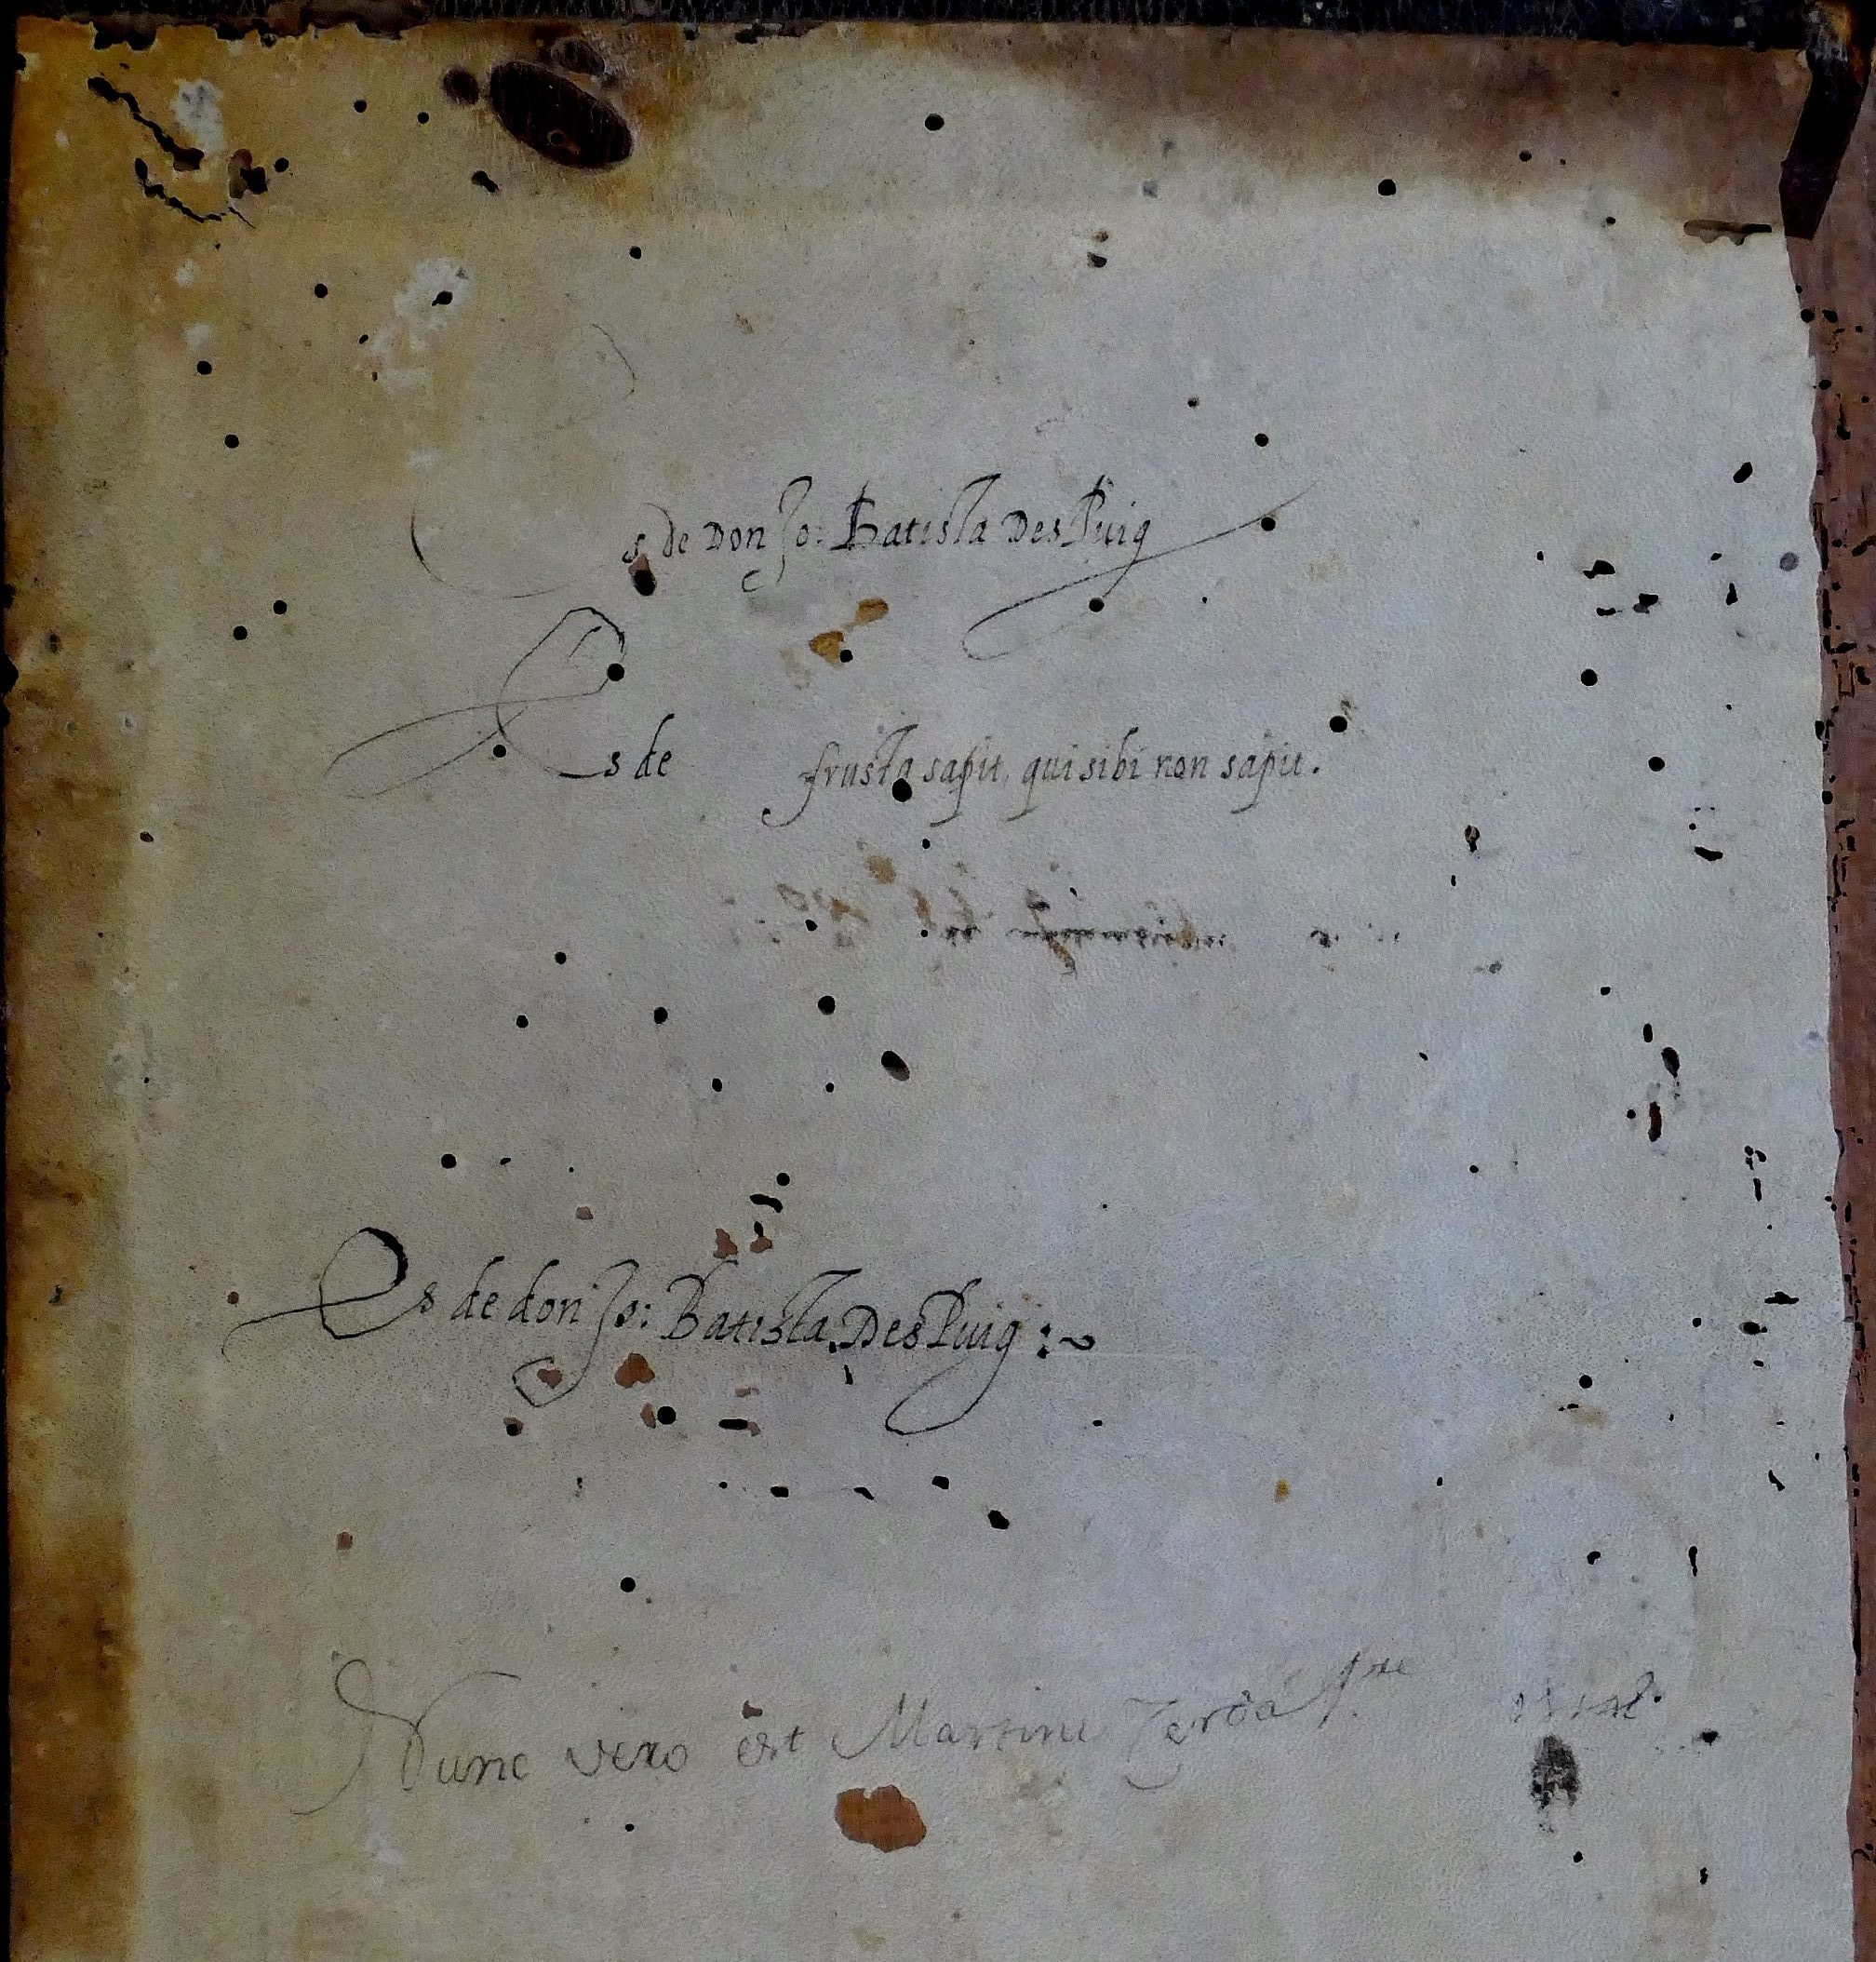 Es de Don Jo: Batista Des Puig
Es de frusta sapit, qui sibi non sapit.
Es de don Jo: Batista Des Puig :~
Nunc vero est Martini